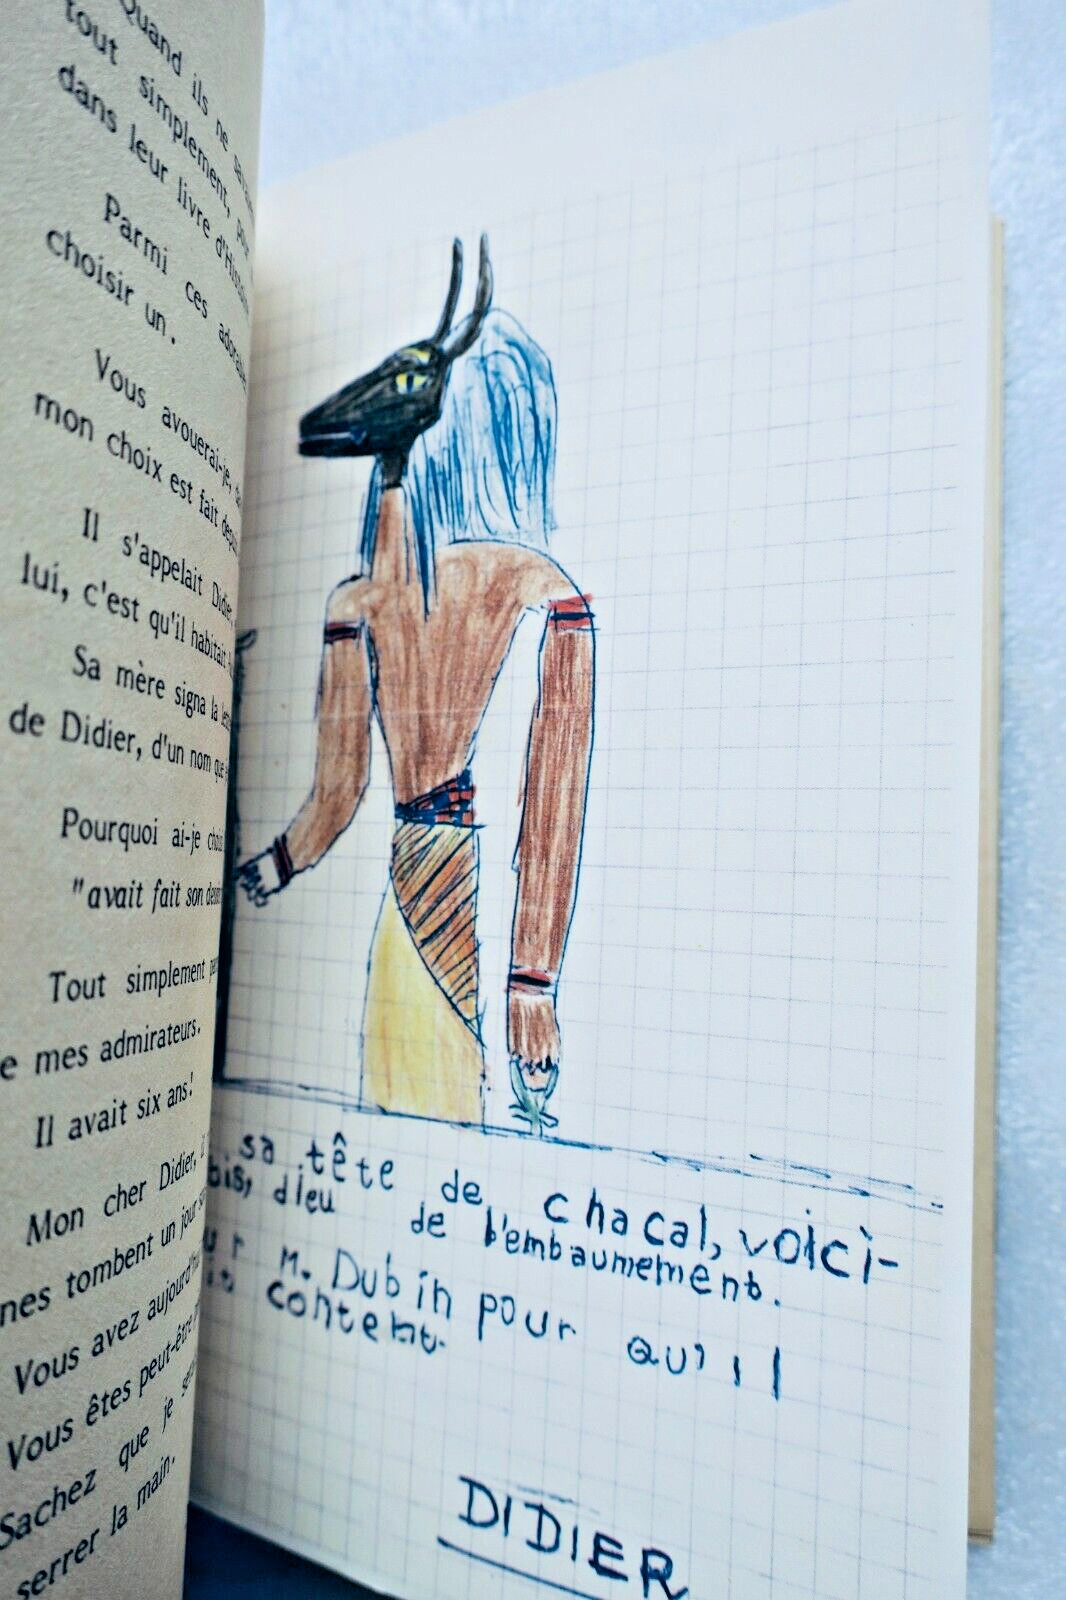 Quand ils ne
tout simplement,
dans leur livre d'Histoire
Parmi ces
choisir un.
Vous avouerai-je,
mon choix est fait
Il s'appelait Didier
lui, c'est qu'il habitait
Sa mère signa la
de Didier, d'un nom que
Pourquoi ai-je
"avait fait son
Tout simplement
mes admirateurs.
Il avait six ans!
Mon cher Didier,
tombent un jour
Vous avez aujourd'hui
Vous êtes peut-être
Sachez que je
serrer la main.
sa tête de chacal, voici-
bis, dieu de l'embaumement.
ur M. Dubin pour qu'il
content.
DIDIER